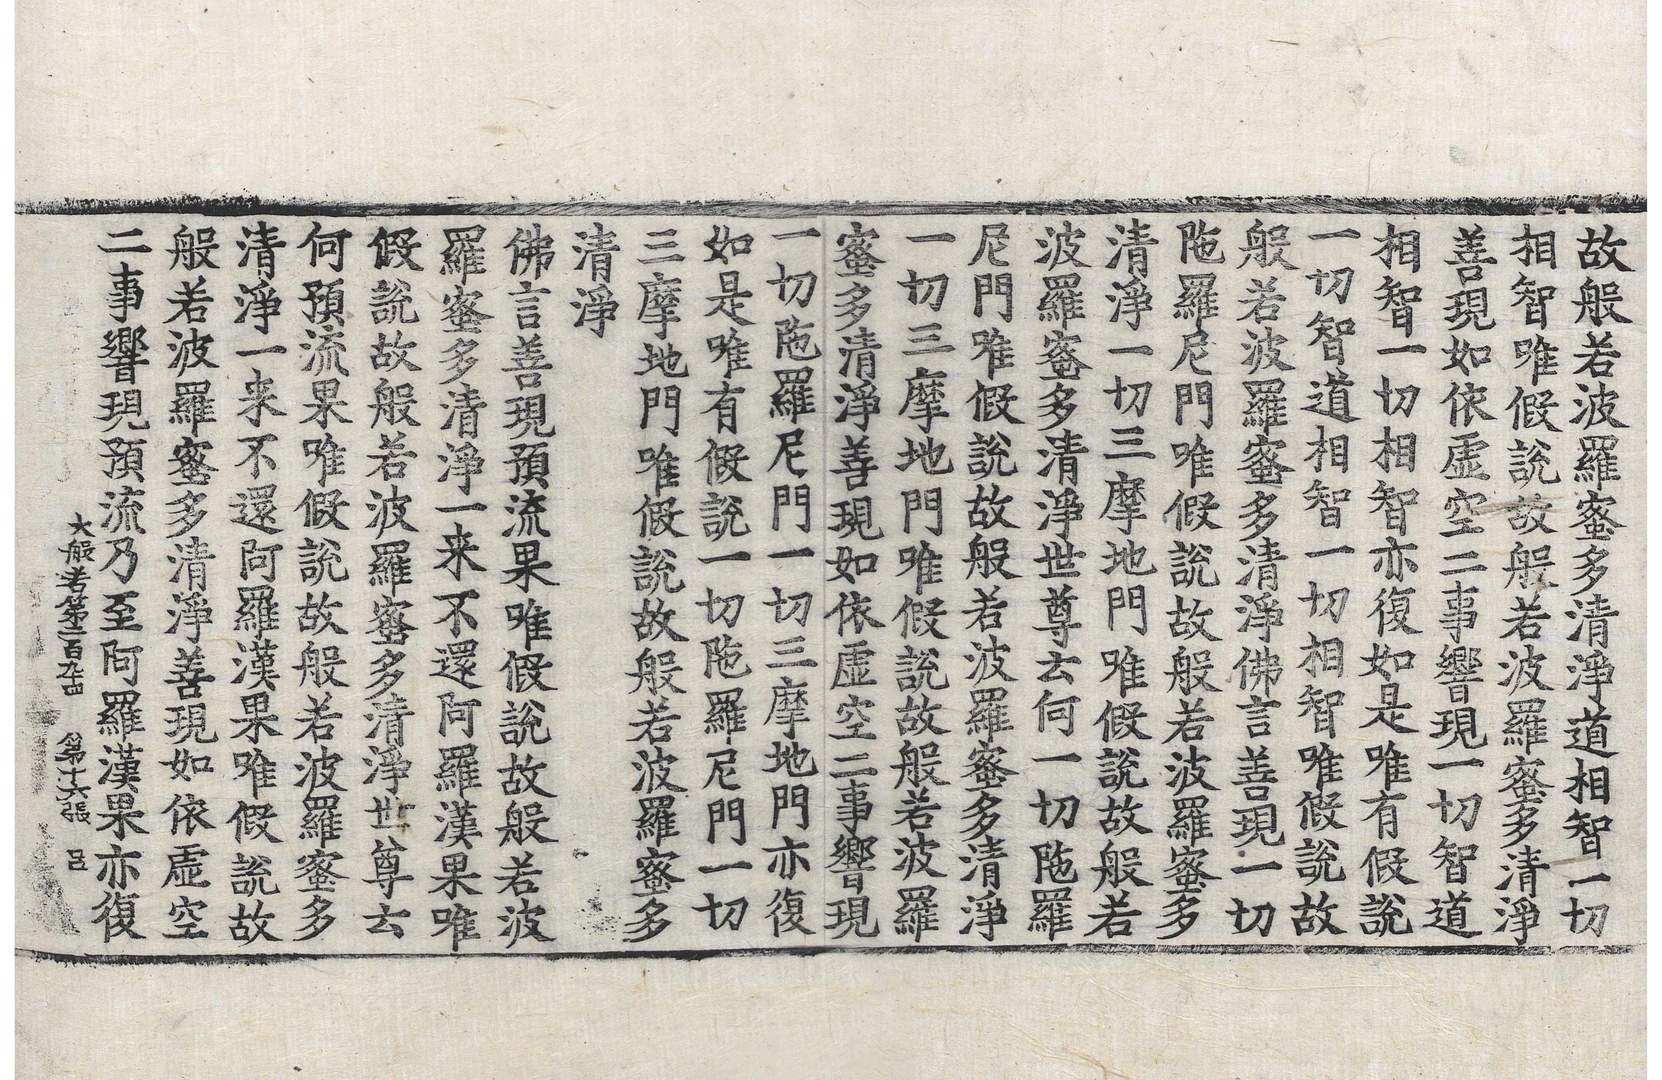 故般若波羅蜜多清淨道相智一切
相智唯假說故般若波羅蜜多清淨
善現如依虛空二事響現一切智道
相智一切相智亦復如是唯有假說
一切智道相智一切相智唯假說故
般若波羅蜜多清淨佛言善現一切
陁羅尼門唯假說故般若波羅蜜多
清淨一切三摩地門唯假說故般若
波羅蜜多清淨世尊云何一切陁羅
尼門唯假說故般若波羅蜜多清淨
一切三摩地門唯假說故般若波羅
蜜多清淨善現如依虛空二事響現
一切陁羅尼門一切三摩地門亦復
如是唯有假說一切陁羅尼門一切
三摩地門唯假說故般若波羅蜜多
清淨
佛言善現預流果唯假說故般若波
羅蜜多清淨一来不還阿羅漢果唯
假說故般若波羅蜜多清淨世尊云
何預流果唯假說故般若波羅蜜多
清淨一来不還阿羅漢果唯假說故
般若波羅蜜多清淨善現如依虛空
二事響現預流乃至阿羅漢果亦復
大般若第二百九十四 第十六張 呂